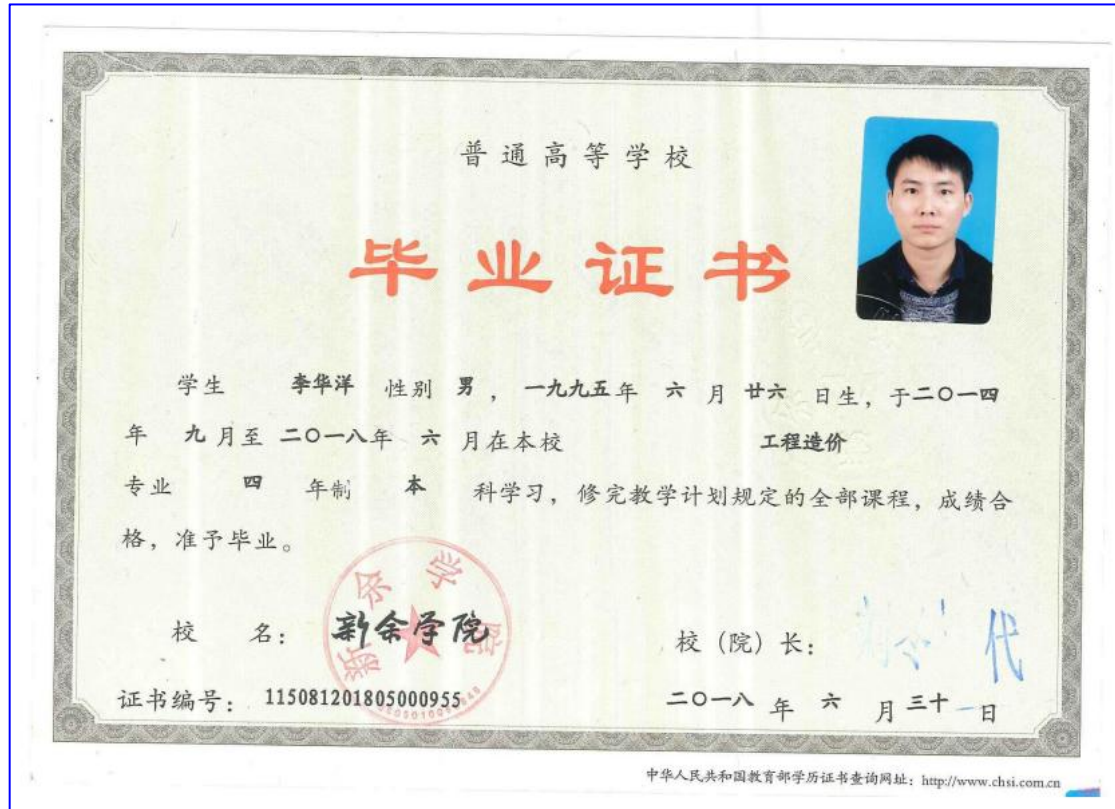 普通高等学校
毕业证书
学生 李华洋 性别 男, 一九九五年 六 月 廿六 日生, 于二〇一四
年 九月至 二〇一八年 六 月在本校 工程造价
专业 四 年制 本 科学习, 修完教学计划规定的全部课程, 成绩合
格, 准予毕业。
新余学院
校 名: 新余学院 校(院)长:
证书编号: 115081201805000955 二〇一八 年 六 月 三十 日
中华人民共和国教育部学历证书查询网址: http://www.chsi.com.cn